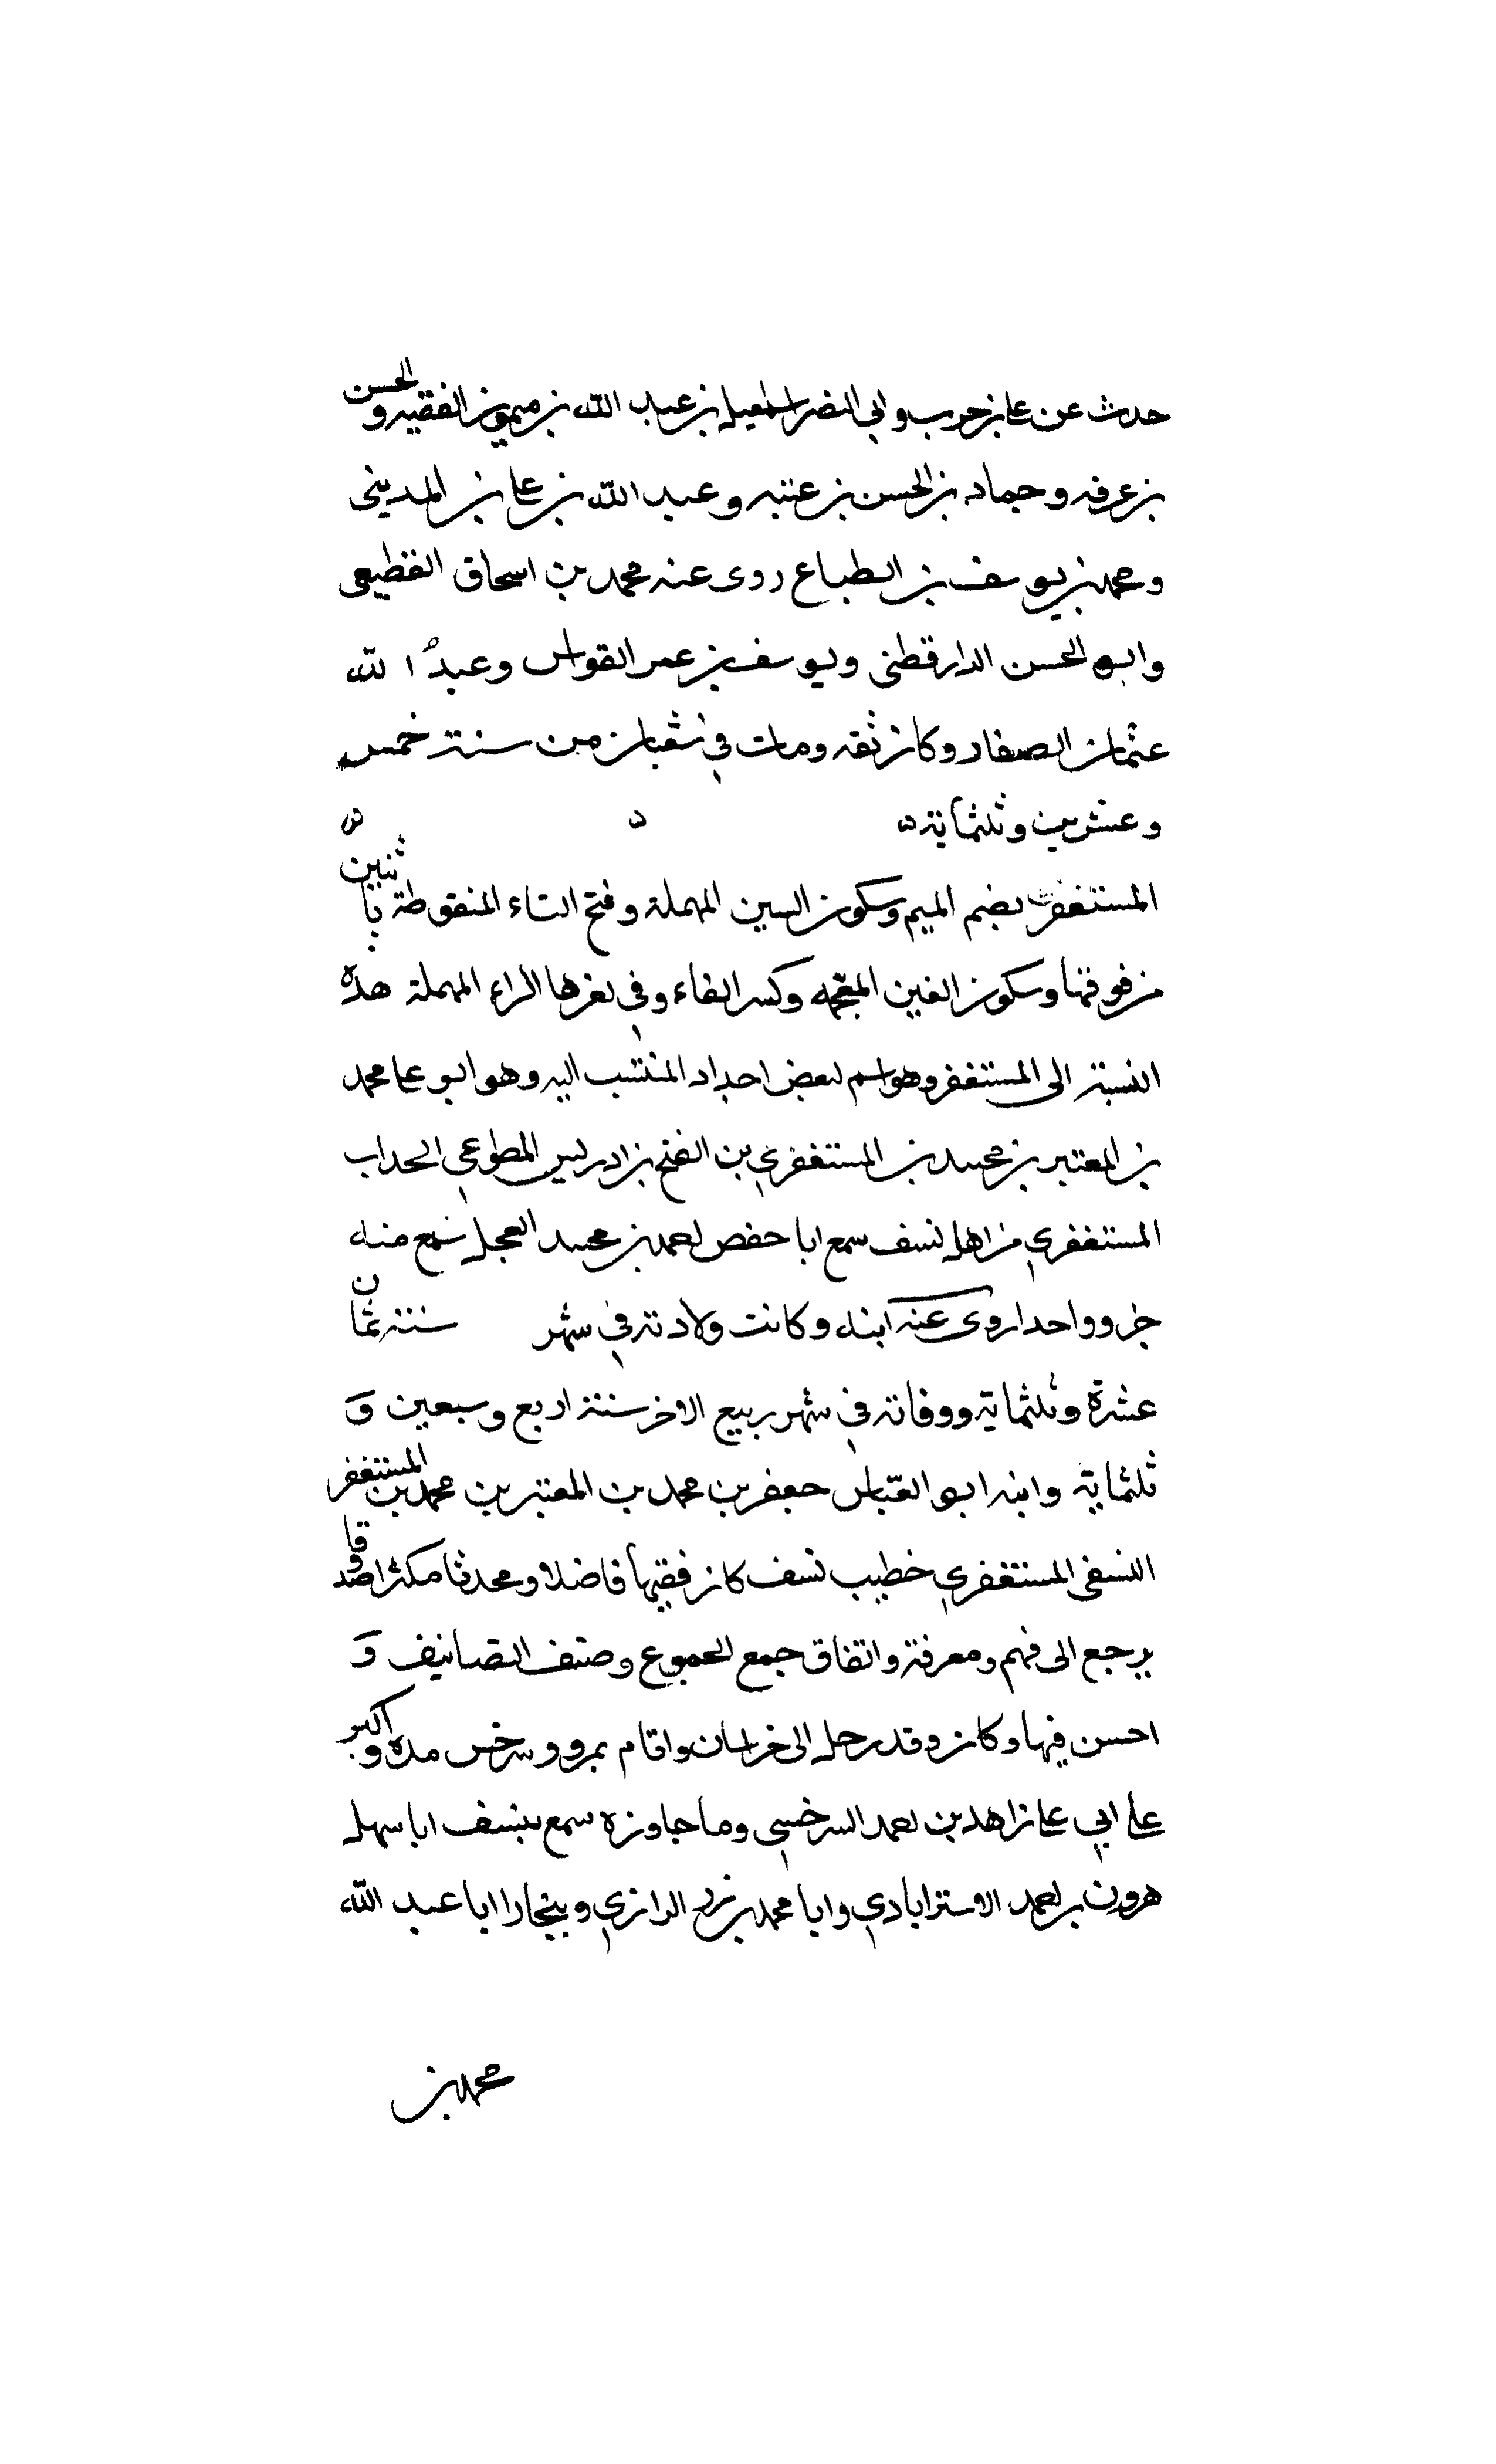 حدث عن على بن حرب وابي النضر اسمعيل بن عبد الله بن ميمون الفقيه والحسن
بن عرفه وحماد بن الحسن بن عنبه وعبد الله بن على بن المديني
ومحمد بن يوسف بن الطباع روى عنه محمد بن اسحاق القطيعي
وابو الحسن الدارقطني ويوسف بن عمر القواس وعبد الله
عثمان الصفار وكان ثقه ومات في شعبان من سنة خمس
وعشرين وثلثماية
المستغفري بضم الميم وسكون السين المهملة وفتح التاء المنقوطة باثنين
من فوقها وسكون الغين المعجمه وكسر الفاء وفي اخرها الراء المهملة هذه
النسبة الى المستغفر وهو اسم لبعض اجداد المنتسب اليه وهو ابو على محمد
بن المعتبر بن محمد بن المستغفري بن الفتح بن ادريس المطوعي
المستغفري من اهل نسف سمع ابا حفص احمد بن محمد العجلي سمع منه
جزو واحدا روى عنه ابنه وكانت ولادته في شهر سنة ثمان
عشرة وثلثماية ووفاته في شهر ربيع الاخر سنة اربع وسبعين و
ثلثماية وابنه ابو العباس جعفر بن محمد بن المعتبر بن محمد بن المستغفر
النسفي المستغفري خطيب نسف كان فقيها فاضلا ومحدثا مكثرا صدوقا
يرجع الى فهم ومعرفة واتقان جمع الجموع وصنف التصانيف و
احسن فيها وكان قد رحل الى خراسان واقام بمرو وسرخس مدة واكبر
على ابي على زاهد بن احمد السرخسي وما جاوزه سمع بنسف ابا سهل
هرون بن احمد الاستراباذي وابا محمد بن الرازي وببخارا ابا عبد الله
محمد بن